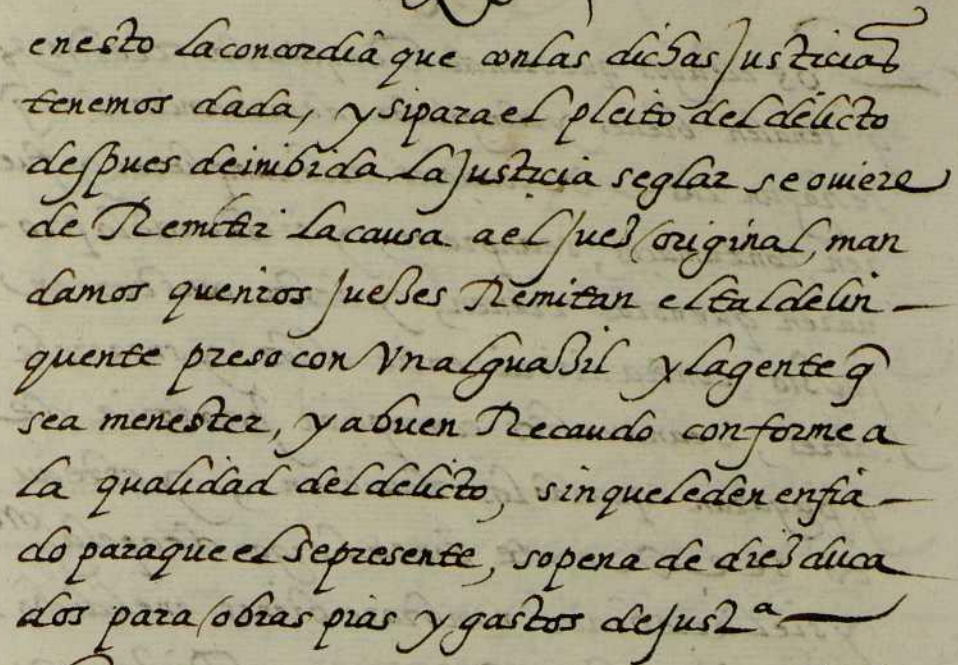 enesto laconcordia que conlas dichas Justicias
tenemos dada, y sipara el pleito del delicto
despues deinibida la Justicia seglar se ouiere
de Remitir la causa a el Juez original, man
damos quenros Juezes Remitan el tal delin-
quente preso con Vn alguazil y la gente q̃
sea menester, y abuen Recaudo conforme a
la qualidad del delicto, sin que le den enfia-
do para que el se presente, sopena de diez duca
dos para obras pias y gastos de Justª